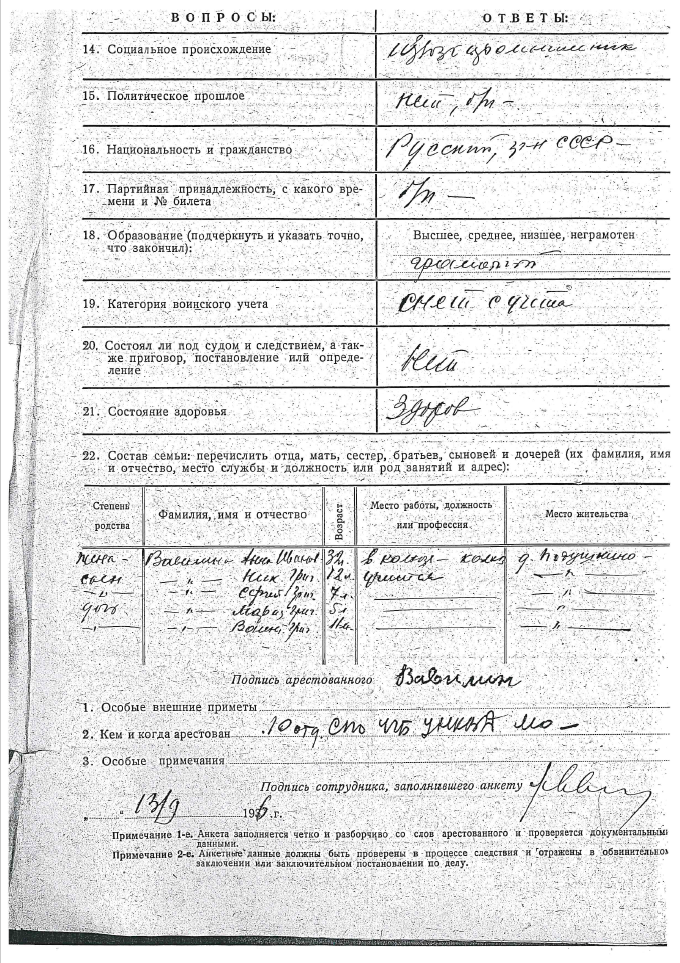 ВОПРОСЫ: ОТВЕТЫ:
14. Социальное происхождение
15. Политическое прошлое нет, б/п –
16. Национальность и гражданство Русский, г-н СССР –
17. Партийная принадлежность, с какого вре-
мени и № билета б/п —
18. Образование (подчеркнуть и указать точно, Высшее, среднее, низшее, неграмотен
что закончил):
грамотн
19. Категория воинского учета снят с учета
20. Состоял ли под судом и следствием, а так-
же приговор, постановление или опреде-
ление Нет
21. Состояние здоровья Здоров
22. Состав семьи: перечислить отца, мать, сестер, братьев, сыновей и дочерей (их фамилия, имя
и отчество, место службы и должность или род занятий и адрес):
Степень родства Фамилия, имя и отчество Возраст Место работы, должность или профессия Место жительства
жена – Вавилина Анна Иванов 32. в колхозе д.
сын – „ – Ник. Григ. 12 л. учится – „ –
– „ – – „ – Сергей Григ. 7 л. – „ –
дочь – „ – Григ. 5 л – „ –
– „ – – „ – Григ. – „ –
Подпись арестованного Вавилин
1. Особые внешние приметы
2. Кем и когда арестован 10 отд. УНКВД МО –
3. Особые примечания
Подпись сотрудника, заполнившего анкету
„ “ 13/9 1936 г.
Примечание 1-е. Анкета заполняется четко и разборчиво со слов арестованного и проверяется документальными
данными.
Примечание 2-е. Анкетные данные должны быть проверены в процессе следствия и отражены в обвинительном
заключении или заключительном постановлении по делу.